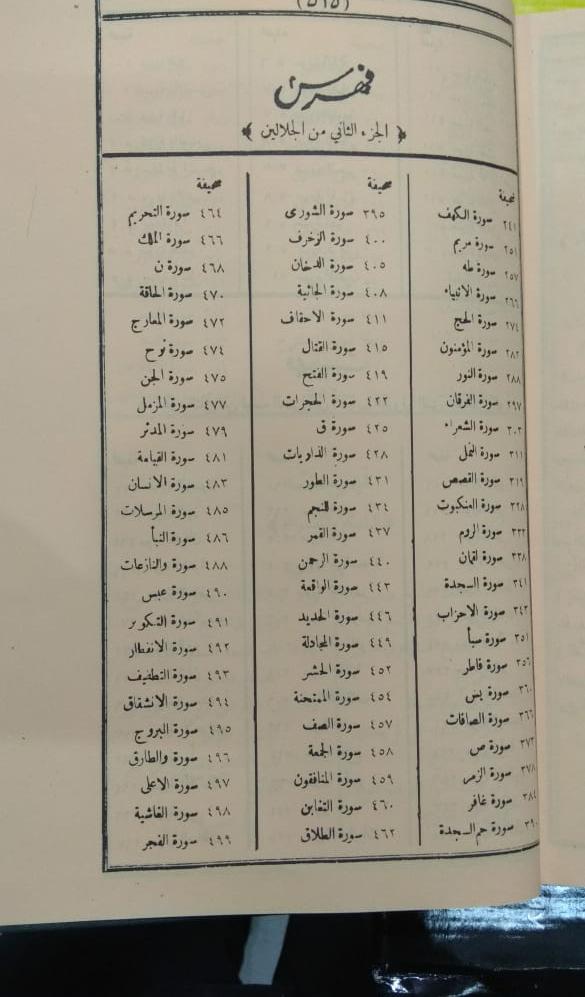 (٥١٥)
فهرس
﴿ الجزء الثاني من الجلالين ﴾
صحيفة
٢٤١ سورة الكهف
٢٥١ سورة مريم
٢٥٧ سورة طه
٢٦٦ سورة الانبياء
٢٧٤ سورة الحج
٢٨٢ سورة المؤمنون
٢٨٨ سورة النور
٢٩٧ سورة الفرقان
٣٠٢ سورة الشعراء
٣١١ سورة النمل
٣١٩ سورة القصص
٣٢٨ سورة العنكبوت
سورة الروم
٣٣٨ سورة لقمان
٣٤١ سورة السجدة
٣٤٣ سورة الاحزاب
٣٥١ سورة سبأ
٣٥٦ سورة فاطر
٣٦٠ سورة يس
٣٦٦ سورة الصافات
٣٧٢ سورة ص
٣٧٨ سورة الزمر
٣٨٤ سورة غافر
٣٩٠ سورة حم السجدة
صحيفة
٣٩٥ سورة الشورى
٤٠٠ سورة الزخرف
٤٠٥ سورة الدخان
٤٠٨ سورة الجاثية
٤١١ سورة الاحقاف
٤١٥ سورة القتال
٤١٩ سورة الفتح
٤٢٢ سورة الحجرات
٤٢٥ سورة ق
٤٢٨ سورة الذاريات
٤٣١ سورة الطور
٤٣٤ سورة النجم
٤٣٧ سورة القمر
٤٤٠ سورة الرحمن
٤٤٣ سورة الواقعة
٤٤٦ سورة الحديد
٤٤٩ سورة المجادلة
٤٥٢ سورة الحشر
٤٥٤ سورة الممتحنة
٤٥٧ سورة الصف
٤٥٨ سورة الجمعة
٤٥٩ سورة المنافقون
٤٦٠ سورة التغابن
٤٦٢ سورة الطلاق
صحيفة
٤٦٤ سورة التحريم
٤٦٦ سورة الملك
٤٦٨ سورة ن
٤٧٠ سورة الحاقة
٤٧٢ سورة المعارج
٤٧٤ سورة نوح
٤٧٥ سورة الجن
٤٧٧ سورة المزمل
٤٧٩ سورة المدثر
٤٨١ سورة القيامة
٤٨٣ سورة الانسان
٤٨٥ سورة المرسلات
٤٨٦ سورة النبأ
٤٨٨ سورة والنازعات
٤٩٠ سورة عبس
٤٩١ سورة التكوير
٤٩٢ سورة الانفطار
٤٩٣ سورة التطفيف
٤٩٤ سورة الانشقاق
٤٩٥ سورة البروج
٤٩٦ سورة والطارق
٤٩٧ سورة الاعلى
٤٩٨ سورة الغاشية
٤٩٩ سورة الفجر